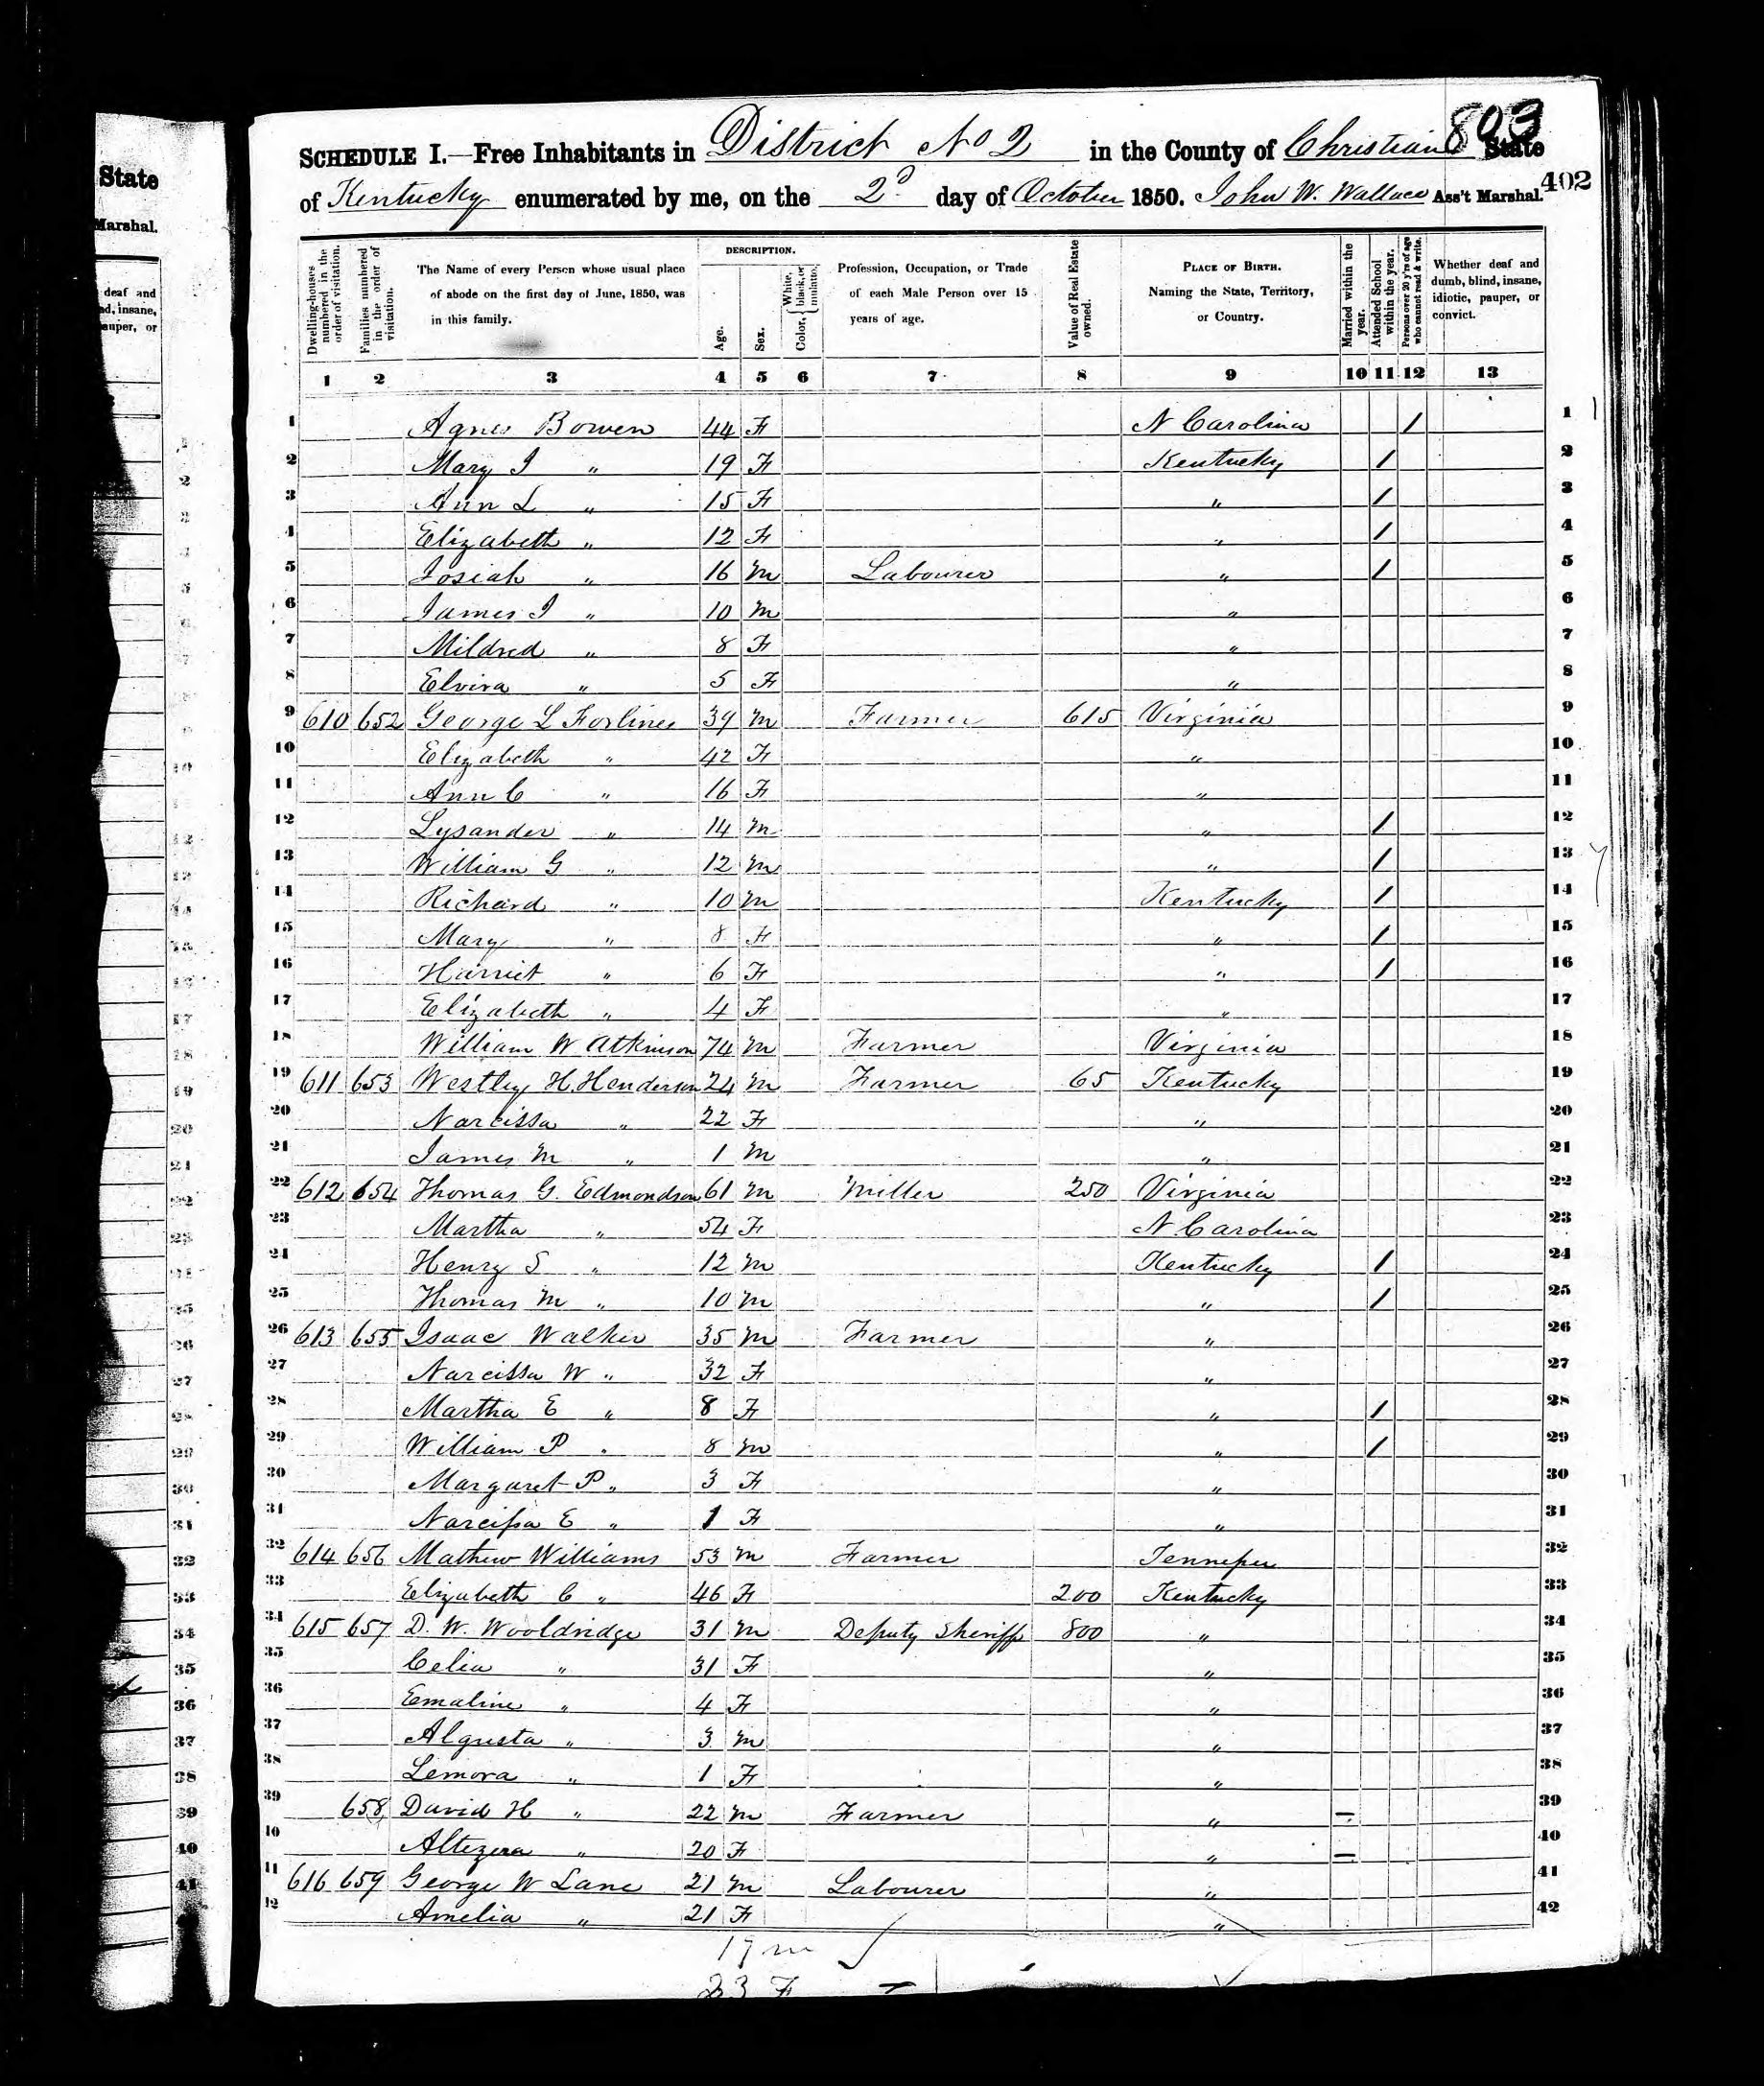 State
Marshal.
deaf and
nd, insane,
auper, or
803
SCHEDULE I.—Free Inhabitants in District No 2 in the County of Christian State
of Kentucky enumerated by me, on the 2d day of October 1850. John W. Wallace Ass't Marshal. 402
Dwelling-houses numbered in the order of visitation.
Families numbered in the order of visitation.
The Name of every Person whose usual place of abode on the first day of June, 1850, was in this family.
DESCRIPTION.
Age.
Sex.
Color, { White, black, or mulatto.
Profession, Occupation, or Trade of each Male Person over 15 years of age.
Value of Real Estate owned.
PLACE OF BIRTH. Naming the State, Territory, or Country.
Married within the year.
Attended School within the year.
Persons over 20 y'rs of age who cannot read & write.
Whether deaf and dumb, blind, insane, idiotic, pauper, or convict.
1 2 3 4 5 6 7 8 9 10 11 12 13
1 Agnes Bowen 44 F N Carolina / 1
2 Mary J " 19 F Kentucky / 2
3 Ann L " 15 F " / 3
4 Elizabeth " 12 F " / 4
5 Josiah " 16 M Labourer " / 5
6 James J " 10 M " 6
7 Mildred " 8 F " 7
8 Elvira " 5 F " 8
9 610 652 George L Forlines 39 M Farmer 615 Virginia 9
10 Elizabeth " 42 F " 10
11 Ann C " 16 F " 11
12 Lysander " 14 M " / 12
13 William G " 12 M " / 13
14 Richard " 10 M Kentucky / 14
15 Mary " 8 F " / 15
16 Harriet " 6 F " / 16
17 Elizabeth " 4 F " 17
18 William W Atkinson 74 M Farmer Virginia 18
19 611 653 Westley H. Henderson 24 M Farmer 65 Kentucky 19
20 Narcissa " 22 F " 20
21 James M " 1 M " 21
22 612 654 Thomas G. Edmondson 61 M Miller 250 Virginia 22
23 Martha " 54 F N Carolina 23
24 Henry S " 12 M Kentucky / 24
25 Thomas M " 10 M " / 25
26 613 655 Isaac Walker 35 M Farmer " 26
27 Narcissa W " 32 F " 27
28 Martha E " 8 F " / 28
29 William P " 8 M " / 29
30 Margaret P " 3 F " 30
31 Narcissa E " 1 F " 31
32 614 656 Mathew Williams 53 M Farmer Tennessee 32
33 Elizabeth C " 46 F 200 Kentucky 33
34 615 657 D. W. Wooldridge 31 M Deputy Sheriff 800 " 34
35 Celia " 31 F " 35
36 Emaline " 4 F " 36
37 Algusta " 3 M " 37
38 Lemora " 1 F " 38
39 658 David H " 22 M Farmer " – 39
40 Altezera " 20 F " – 40
41 616 659 George W Lane 21 M Labourer " 41
42 Amelia " 21 F " 42
19 m
23 F